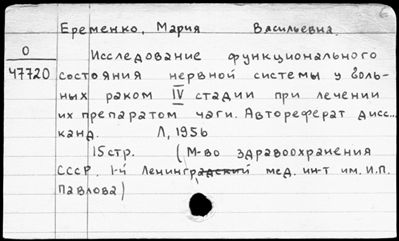 Еременко, Мария Васильевна.
О
47720
Исследование функционального
состояния нервной системы у боль-
ных раком IV стадии при лечении
их препаратом чаги. Автореферат дисс...
канд. Л, 1956
15 стр. (М-во здравоохранения
СССР. 1-й Ленинградский мед. ин-т им. И.П.
Павлова)